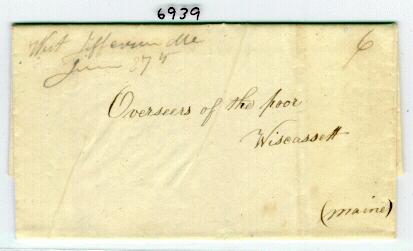 6939
West Jefferson Me
June
6
Overseers of the poor
Wiscassett
(maine)